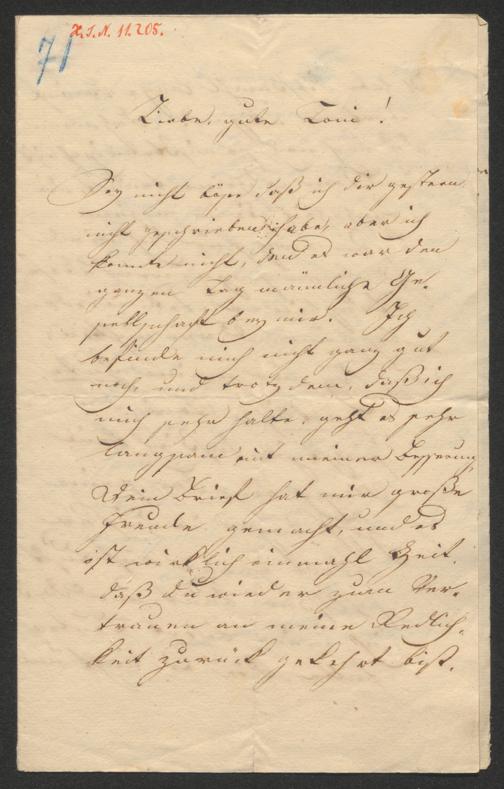 H.I.N. 11.205.
71
Liebe, gute Toni!
Sey nicht böse daß ich dir gestern
nicht geschrieben habe, aber ich
konnte nicht, denn es war den
ganzen Tag männliche Ge-
sellschaft bey mir. Ich
befinde mich nicht ganz gut
noch, und trotz dem, daß ich
mich sehr halte, geht es sehr
langsam mit meiner Besserung
Dein Brief hat mir große
Freude gemacht, und es
ist wirklich einmahl Zeit,
daß du wieder zum Ver-
trauen an meine Redlich-
keit zurück gekehrt bist.